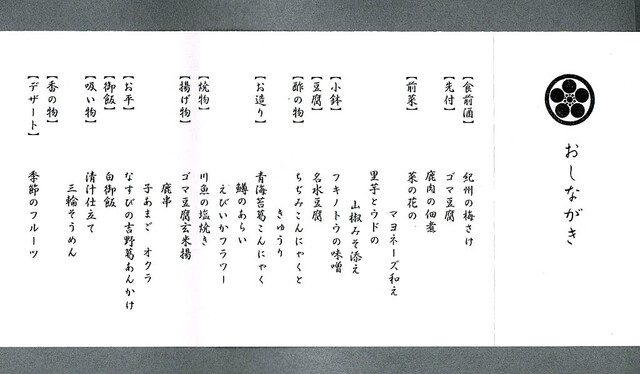 おしながき
【食前酒】 紀州の梅さけ
【先付】 ゴマ豆腐
鹿肉の佃煮
【前菜】 菜の花の
マヨネーズ和え
里芋とウドの
山椒みそ添え
【小鉢】 フキノトウの味噌
【豆腐】 名水豆腐
【酢の物】 ちぢみこんにゃくと
きゅうり
【お造り】 青海苔葛こんにゃく
鱒のあらい
えびいかフラワー
【焼物】 川魚の塩焼き
【揚げ物】 ゴマ豆腐玄米揚
鹿串
子あまご オクラ
【お平】 なすびの吉野葛あんかけ
【御飯】 白御飯
【吸い物】 清汁仕立て
三輪そうめん
【香の物】
【デザート】 季節のフルーツ